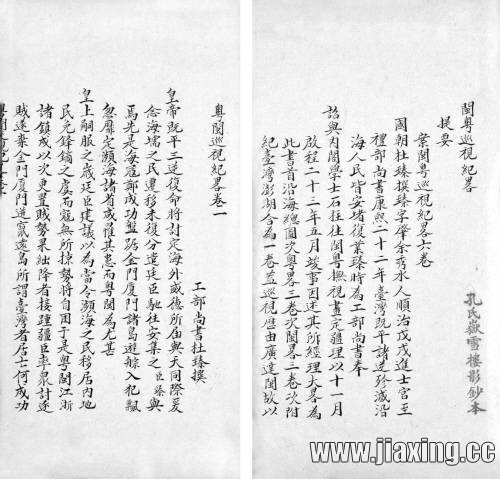 閩粤巡視紀畧
提要
案閩粤巡視紀畧六卷
國朝杜臻撰臻字肇余秀水人順治戊戌進士官至
禮部尚書康熙二十二年臺灣既平諸逆殄滅沿
海人民皆安堵復業臻時為工部尚書奉
詔與内閣學士石柱往閩粤撫視畫定疆理以十一月
啟程二十三年五月竣事因述其所經理大畧為
此書首沿海總圖次粤畧三卷次閩畧三卷次附
紀臺灣澎湖合為一卷葢巡視歴由廣達閩故以
孔氏嶽雪樓影鈔本
粤閩巡視紀畧卷一
工部尚書杜臻撰
皇帝既平三逆復命將討定海外威德所届與天同際爰
念海壖之民遷移未復分遣廷臣馳往安集之臣臻與
焉先是海寇鄭成功盤踞金門厦門諸島遊艅入犯飄
忽靡定瀕海諸省或罹其患而粤閩為尤甚
皇上嗣服之歲廷臣建議以為當令瀕海之民移居内地
民免鋒鏑之虞而寇無所掠勢將自困于是粤閩江浙
諸鎮咸以次更置賊勢果絀降者接踵疆臣率衆討逐
賊遂棄金門厦門遁竄遠島所謂臺灣者居亡何成功
www.jiaxing.cc